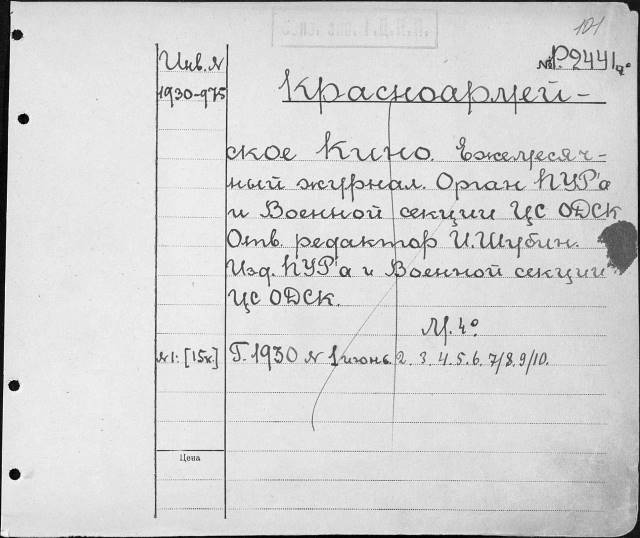 101
Инв. N
№ P. 2441 4°
1930-975
Красноармей-
ское Кино. Ежемесяч-
ный журнал. Орган ПУР'а
и Военной секции ЦС ОДСК
Отв. редактор И. Шубин.
Изд. ПУР'а и Военной секции
ЦС ОДСК.
М. 4°
№1: [15к.] Г. 1930 N 1 июнь. 2. 3. 4. 5. 6. 7/8. 9/10.
Цена